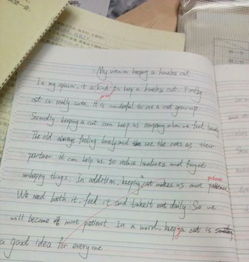 My view on keeping a homeless cat
In my opinion, it is good to keep a homeless cat. Firstly
cat is really cute. It is wonderful to see a cat grow up.
Secondly keeping a cat can keep us company when we feel lonely
The old always feeling lonely and see the cats as their
partner. It can help us to reduce loneliness and forget
unhappy things. In addition, keeping cat makes us more patience
We need bath it, feed it and take it out daily. So we
will become of more patient. In a word, keeping a cat is
a good idea for everyone